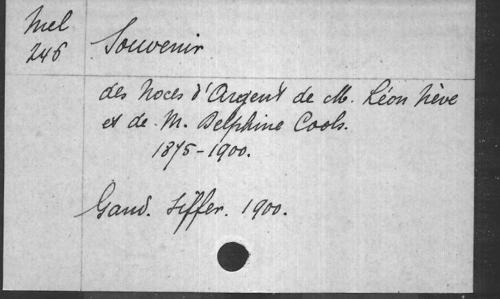 Mel
246
Souvenir
des Noces d'Argent de M. Léon Nève
et de M. Delphine Cools.
1875-1900.
Gand. Siffer. 1900.